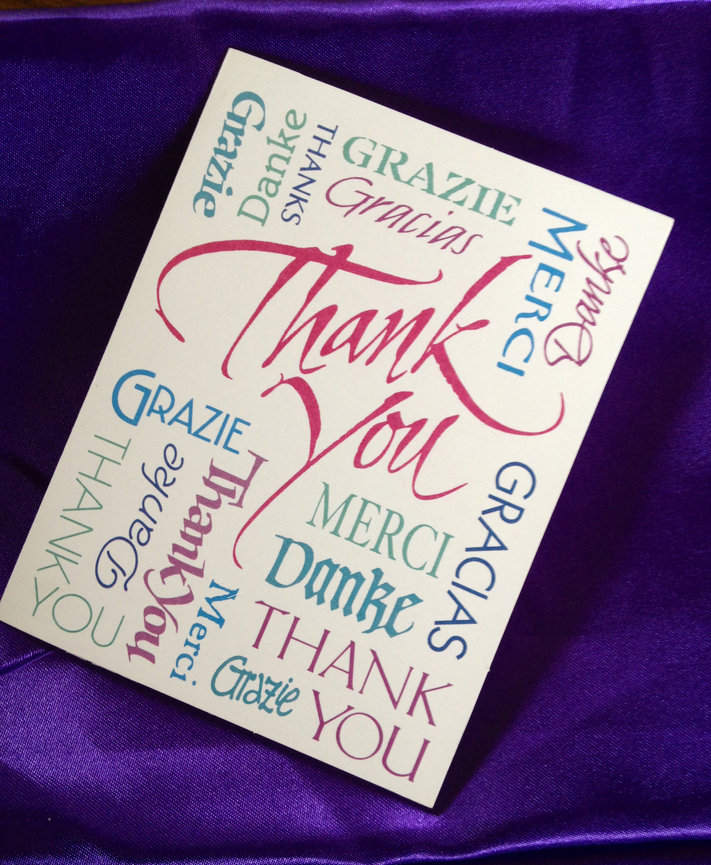 Grazie
Danke
THANKS
GRAZIE
Gracias
MERCI
Danke
Thank
You
GRAZIE
THANK
YOU
Danke
Thank You
MERCI
GRACIAS
Danke
Merci
Grazie
THANK
YOU